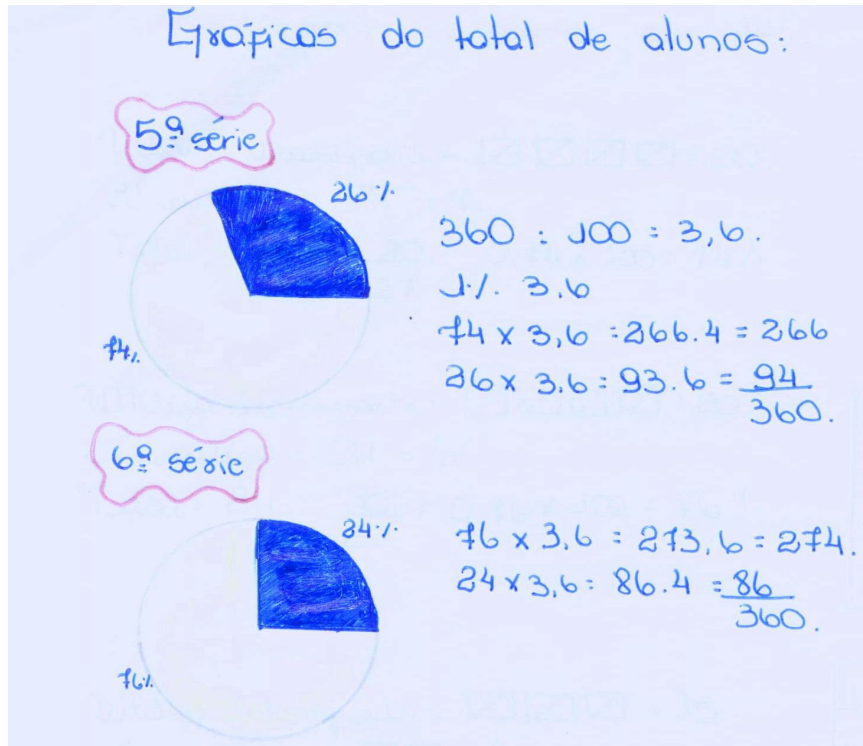 Gráficos do total de alunos:
5ª série
26%
360 : 100 = 3,6.
1% 3,6
74 x 3,6 = 266.4 = 266
74%
26 x 3.6 = 93.6 = 94
360.
6ª série
24%
76 x 3,6 = 273,6 = 274.
24 x 3,6 = 86.4 = 86
360.
76%